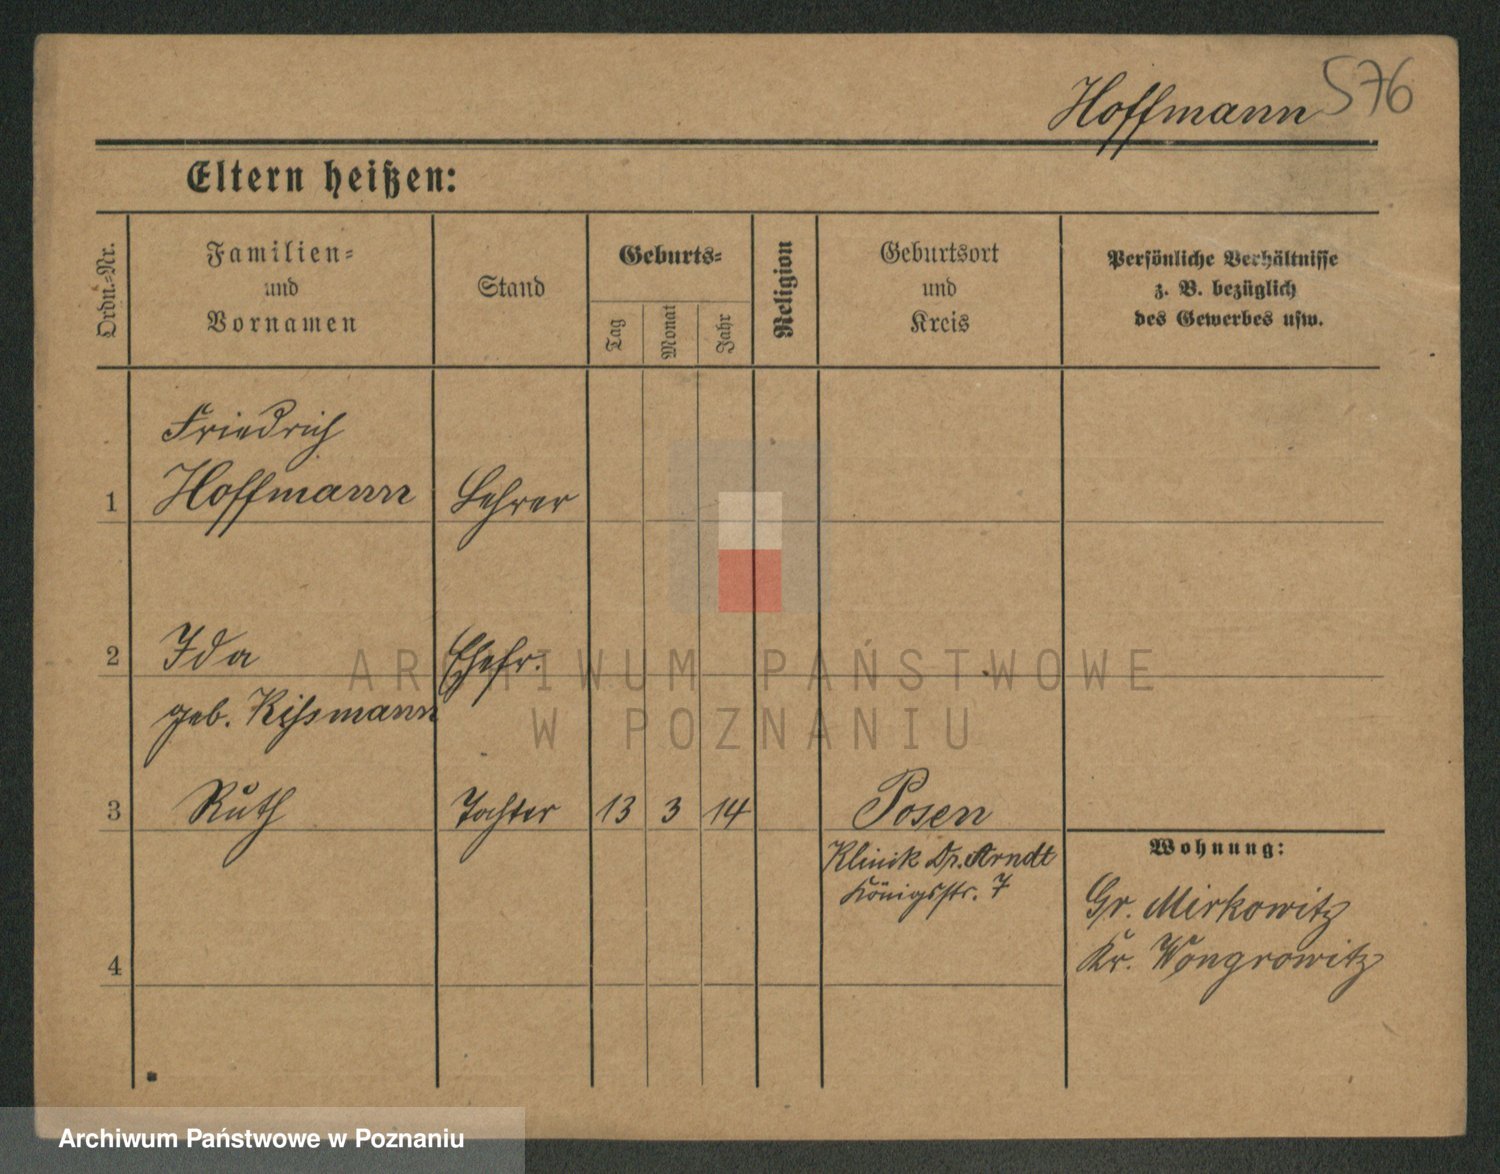 Hoffmann 576
Eltern heißen:
Ordn.-Nr.
Familien-
und
Vornamen
Stand
Geburts-
Tag
Monat
Jahr
Religion
Geburtsort
und
Kreis
Persönliche Verhältnisse
z. B. bezüglich
des Gewerbes usw.
Friedrich
1 Hoffmann Lehrer
2 Ida Ehefr.
geb. Rißmann
3 Ruth Tochter 13 3 14 Posen
Klinik Dr. Arndt
Königsstr. 7
Wohnung:
Gr. Mirkowitz
Kr. Wongrowitz
4
ARCHIWUM PAŃSTWOWE
W POZNANIU
Archiwum Państwowe w Poznaniu